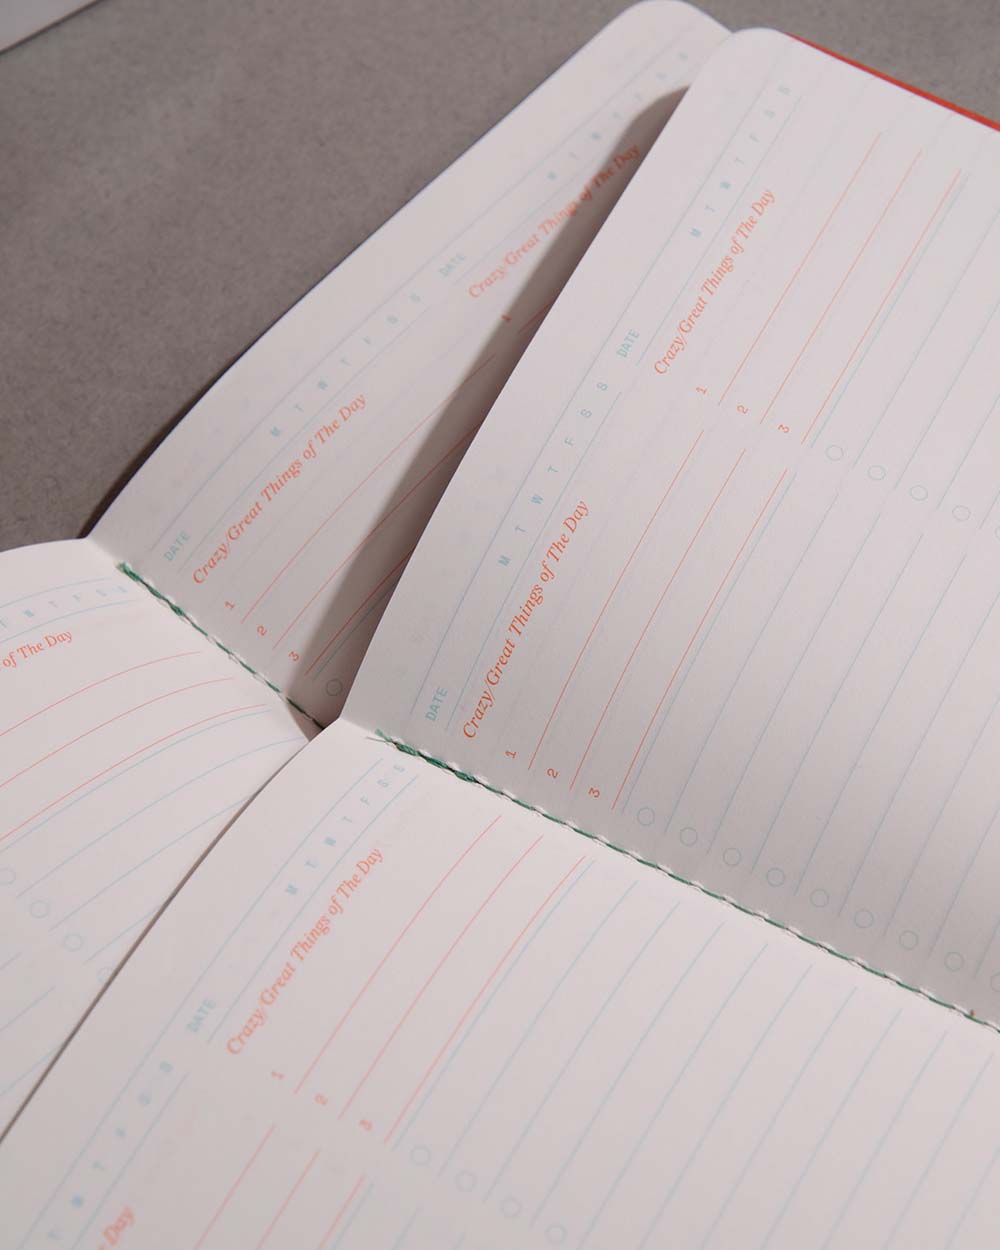 M T W T F S S
DATE
Crazy/Great Things of The Day
1
M T W T F S S
DATE
Crazy/Great Things of The Day
1
2
3
M T W T F S S
DATE
Crazy/Great Things of The Day
1
2
3
M T W T F S S
DATE
Crazy/Great Things of The Day
1
2
3
T W T F S S
of The Day
M T W T F S S
DATE
Crazy/Great Things of The Day
1
2
3
M T W T F S S
Day